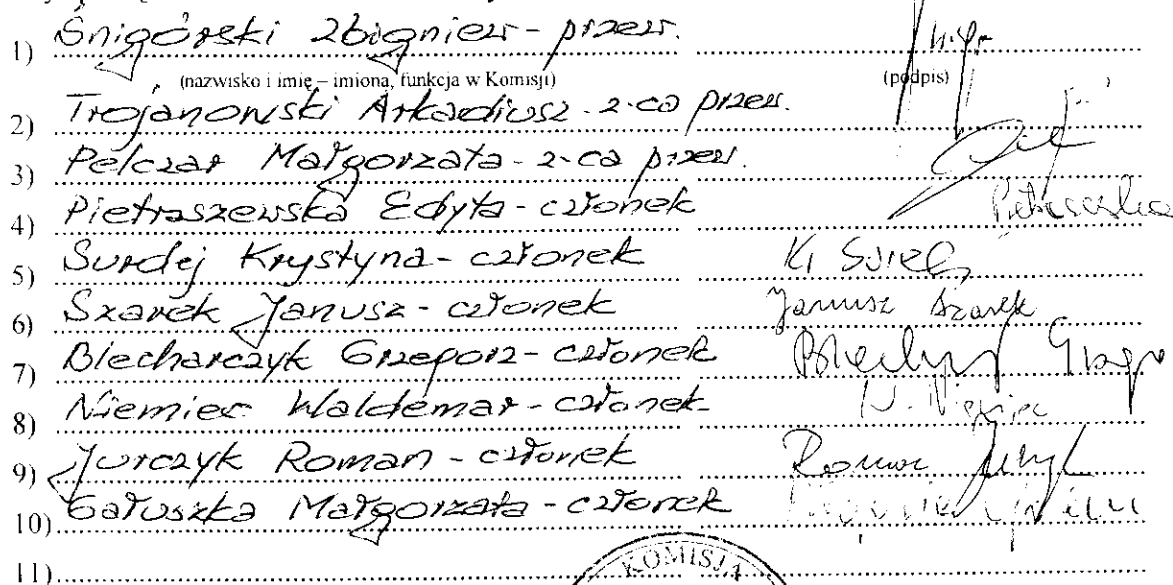 1) Śnigórski Zbigniew - przew.
(nazwisko i imię – imiona, funkcja w Komisji) (podpis)
2) Trojanowski Arkadiusz - z-ca przew.
3) Pelczar Małgorzata - z-ca przew.
4) Pietraszewska Edyta - członek
5) Surdej Krystyna - członek
6) Szarek Janusz - członek Janusz Szarek
7) Blecharczyk Grzegorz - członek
8) Niemiec Waldemar - członek W. Niemiec
9) Jurczyk Roman - członek Roman
10) Gałuszka Małgorzata - członek
11)
KOMISJA